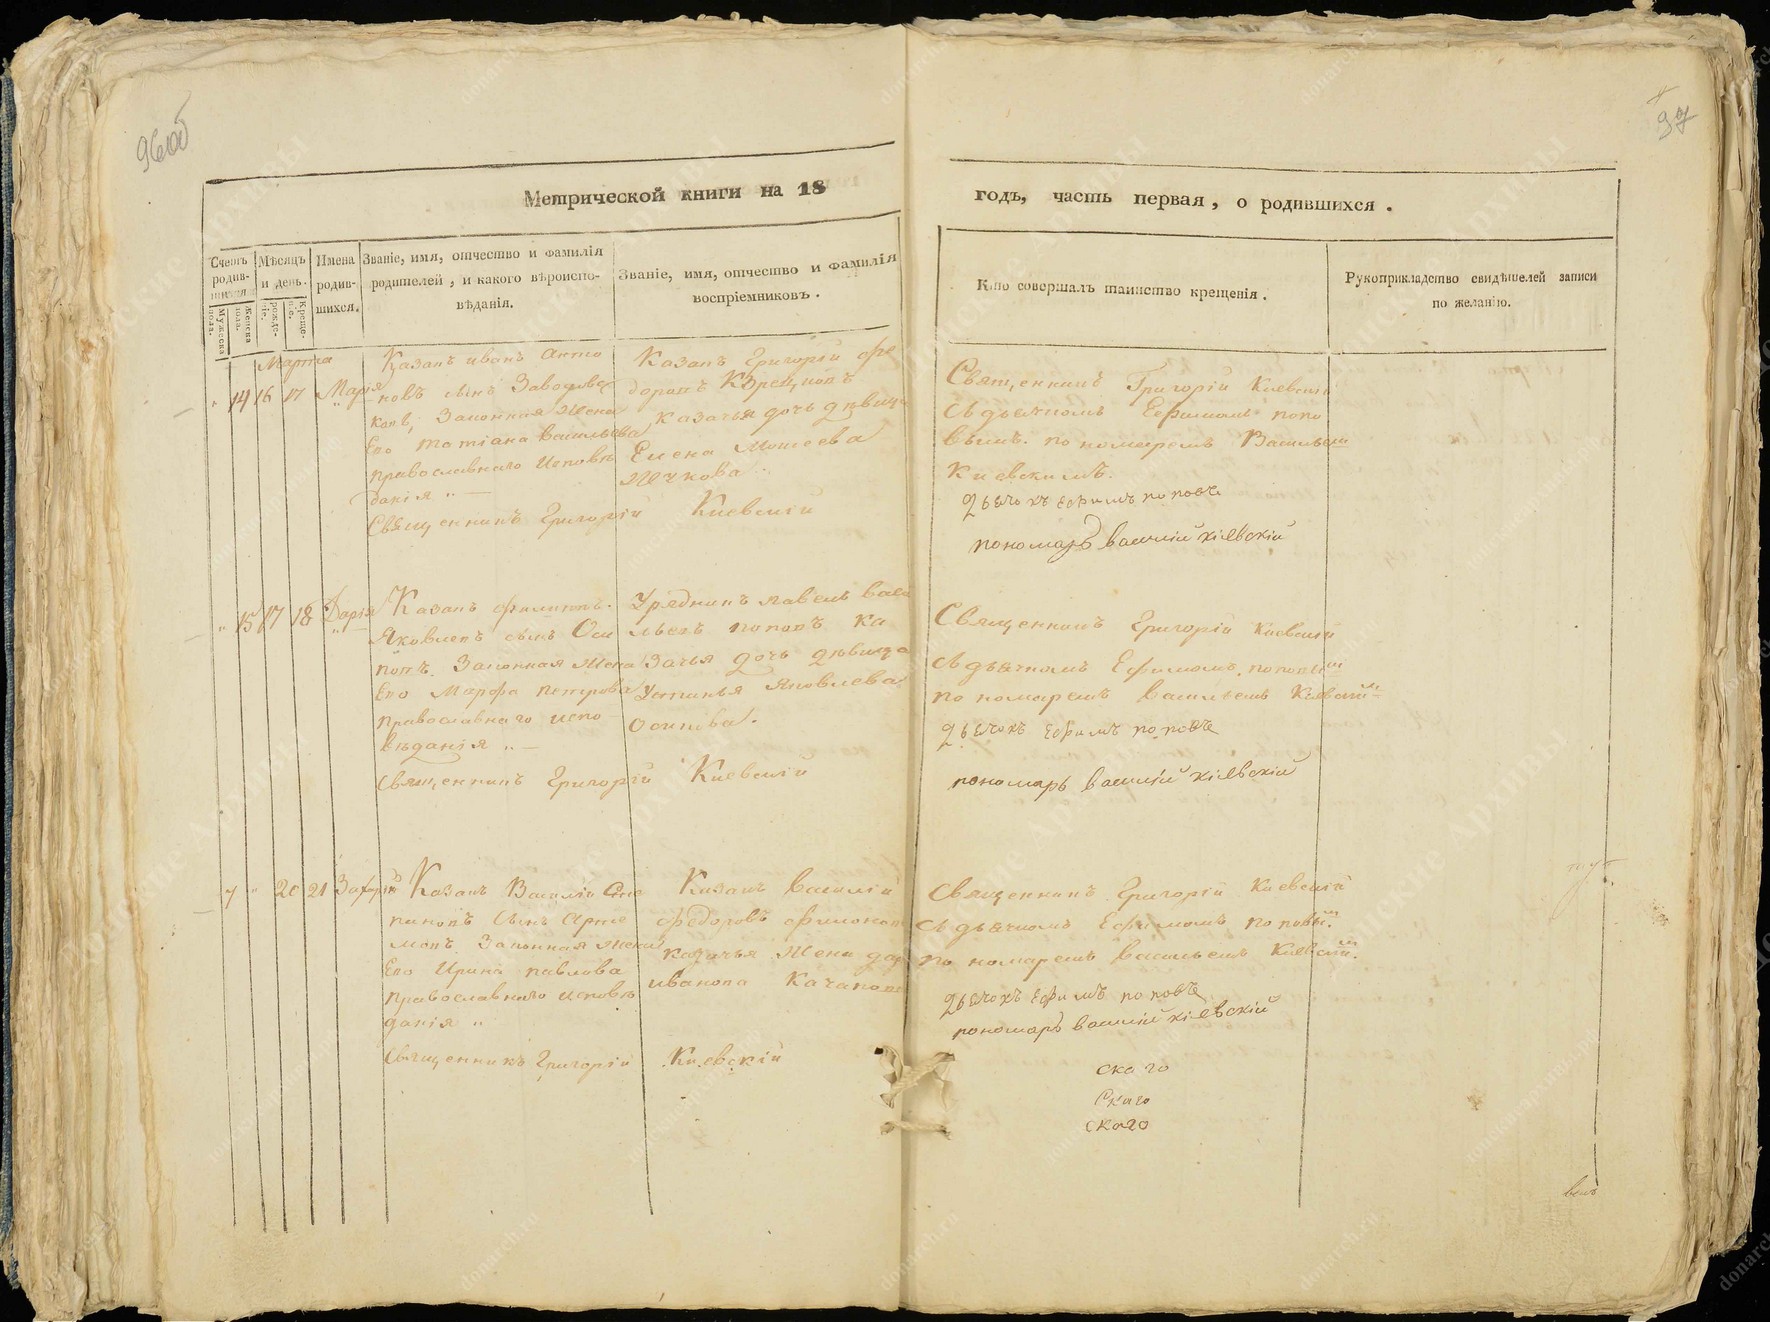 96об
97
Метрической книги на 18
годъ, часть первая, о родившихся.
Счетъ родившихся
Мужеска пола.
Женска пола.
Мѣсяцъ и день.
рожденіе.
крещеніе.
Имена родившихся.
Званіе, имя, отчество и фамилія
родителей, и какого вѣроиспо-
вѣданія.
Званіе, имя, отчество и фамилія
воспріемниковъ.
Кто совершалъ таинство крещенія.
Рукоприкладство свидѣтелей записи
по желанію.
Марта
14 16 17 Марія
Казакъ иванъ Анто
новъ сынъ
Законная жена
Его татіана васильева
православнаго исповѣ
данія
Священникъ Григорій Киевскій
Казакъ Григорій Фе
доровъ
казачья дочь дѣвица
Елена Мосеева
Священникъ Григорій Киевскій
Съ дьячкомъ Ефимомъ попо
вымъ. пономаремъ Васильем
Киевскимъ.
дьячокъ Ефимъ поповъ
пономарь василій кіевскій
15 17 18 Дарія
Казакъ филиппъ
Яковлевъ сынъ Оси
повъ. Законная жена
Его Марфа петрова
православнаго испо
вѣданія
Священникъ Григорій Киевскій
Урядникъ павелъ васи
льевъ поповъ ка
зачья дочь дѣвица
Устинья Яковлева
Осипова.
Священникъ Григорій Киевскій
Съ дьячкомъ Ефимомъ поповым
пономаремъ васильемъ Киевским
дьячокъ Ефимъ поповъ
пономарь василій кіевскій
7 20 21 Захарій
Казакъ Василій Сте
пановъ сынъ Арте
мовъ Законная жена
Его Ирина павлова
православнаго исповѣ
данія
Священникъ Григорій Киевскій
Казакъ василій
федоровъ филонов
казачья жена дар
иванова
Священникъ Григорій Киевскій
Съ дьячкомъ Ефимомъ поповым.
пономаремъ васильемъ Киевским.
дьячокъ Ефимъ поповъ
пономарь василій кіевскій
ского
ского
ского